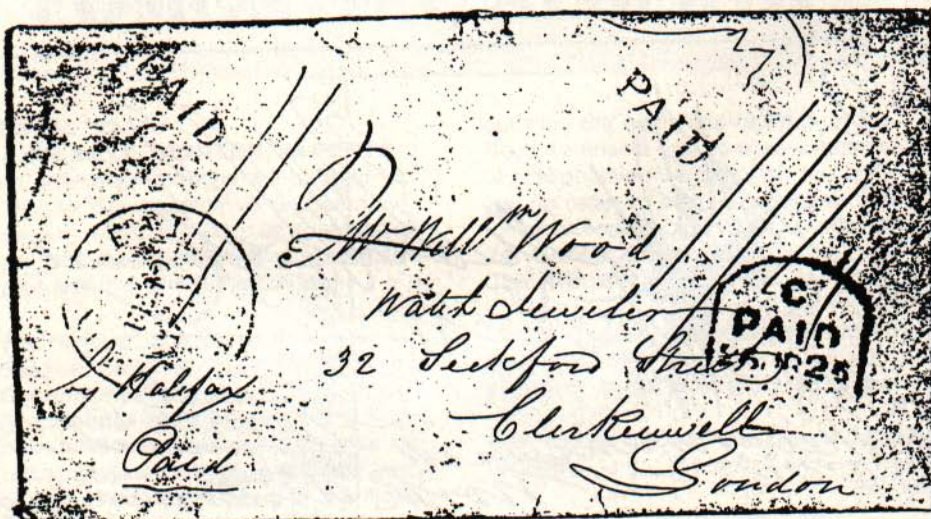 PAID
PAID
Mr Willm Wood
Watch Jeweler
32 Seckford Street
Clerkenwell
London
by Halifax
Paid
C
PAID